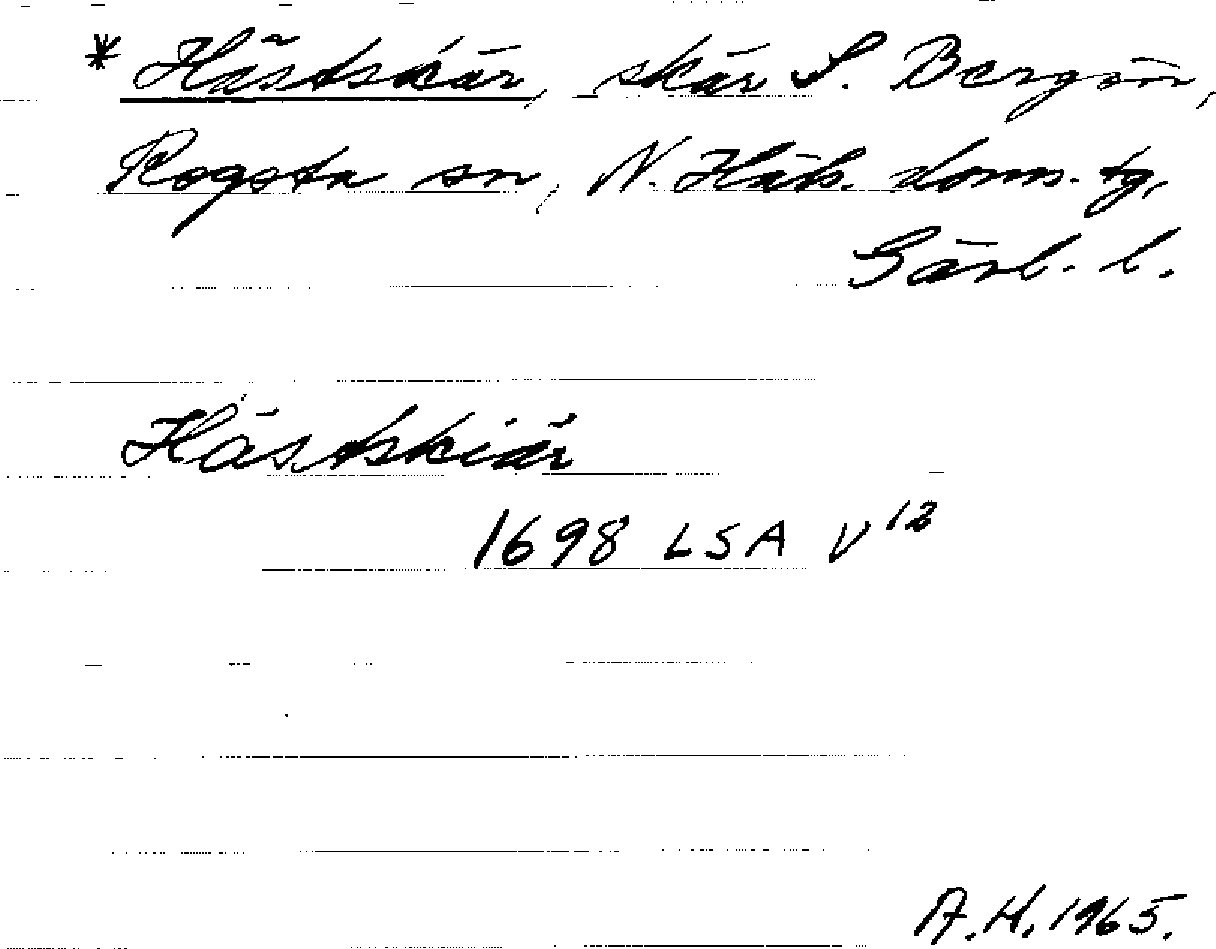 * Hästskär, skär S. Bergön,
Rogsta sn, N. Häls. doms. tg,
Gävl. l.
Hästskiär
1698 LSA V¹²
A.H. 1965.